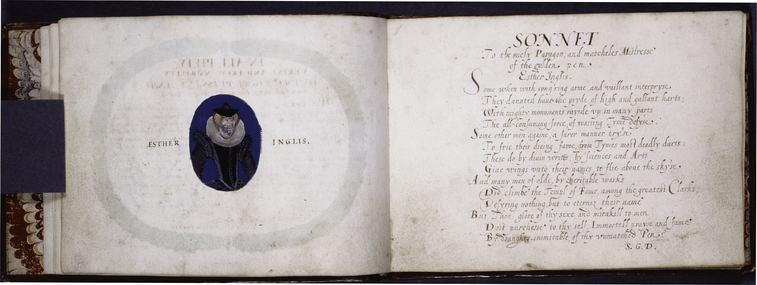 ESTHER INGLIS.
SONNET
To the only Paragon, and matchles Mistresse
of the golden pen.
Esther Inglis.
Some when with conq'ring arme and vailliant interpryse
They danated haue the pryde of high and gallant harts;
With mighty monuments rayse vp in many parts
The all-consuming force of wasting Tyme
Some other men againe, a surer manner
To frie their dieing fame, from Tymes most deadly darts:
These do by diuin writts, by sciences and Arts
Giue wings vnto their names to flie about the skyse.
And many men of olde, by charitable warks
Did climbe the Templ of Fame, among the greatest Clarks,
Desyring nothing, but to eternize their name
But Thou glore of thy sexe, and mirakill to men
Dost purchesse to thy self Immortell prayse and fame
By draughts inimitable, of thy vnmatched Pen.
S. G. D.